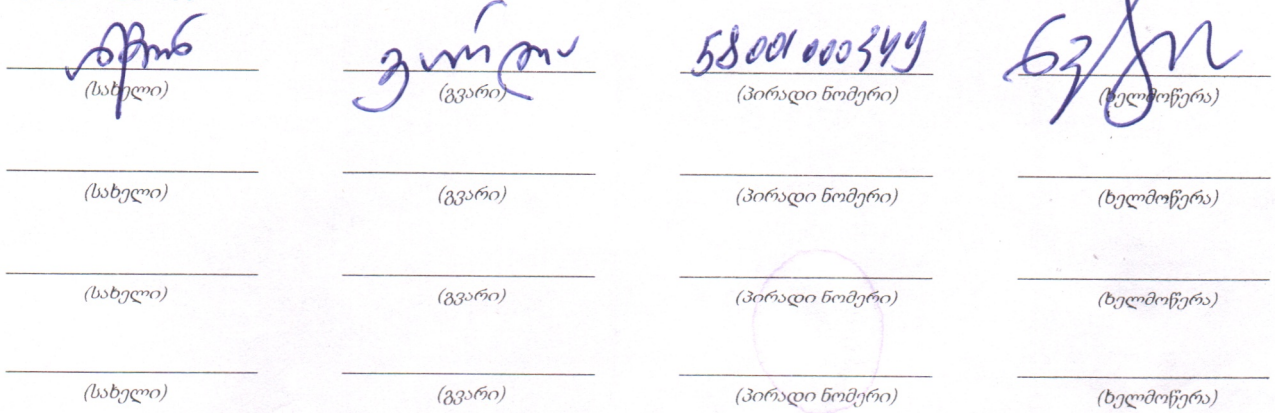 58001000349
(სახელი) (გვარი) (პირადი ნომერი) (ხელმოწერა)
(სახელი) (გვარი) (პირადი ნომერი) (ხელმოწერა)
(სახელი) (გვარი) (პირადი ნომერი) (ხელმოწერა)
(სახელი) (გვარი) (პირადი ნომერი) (ხელმოწერა)